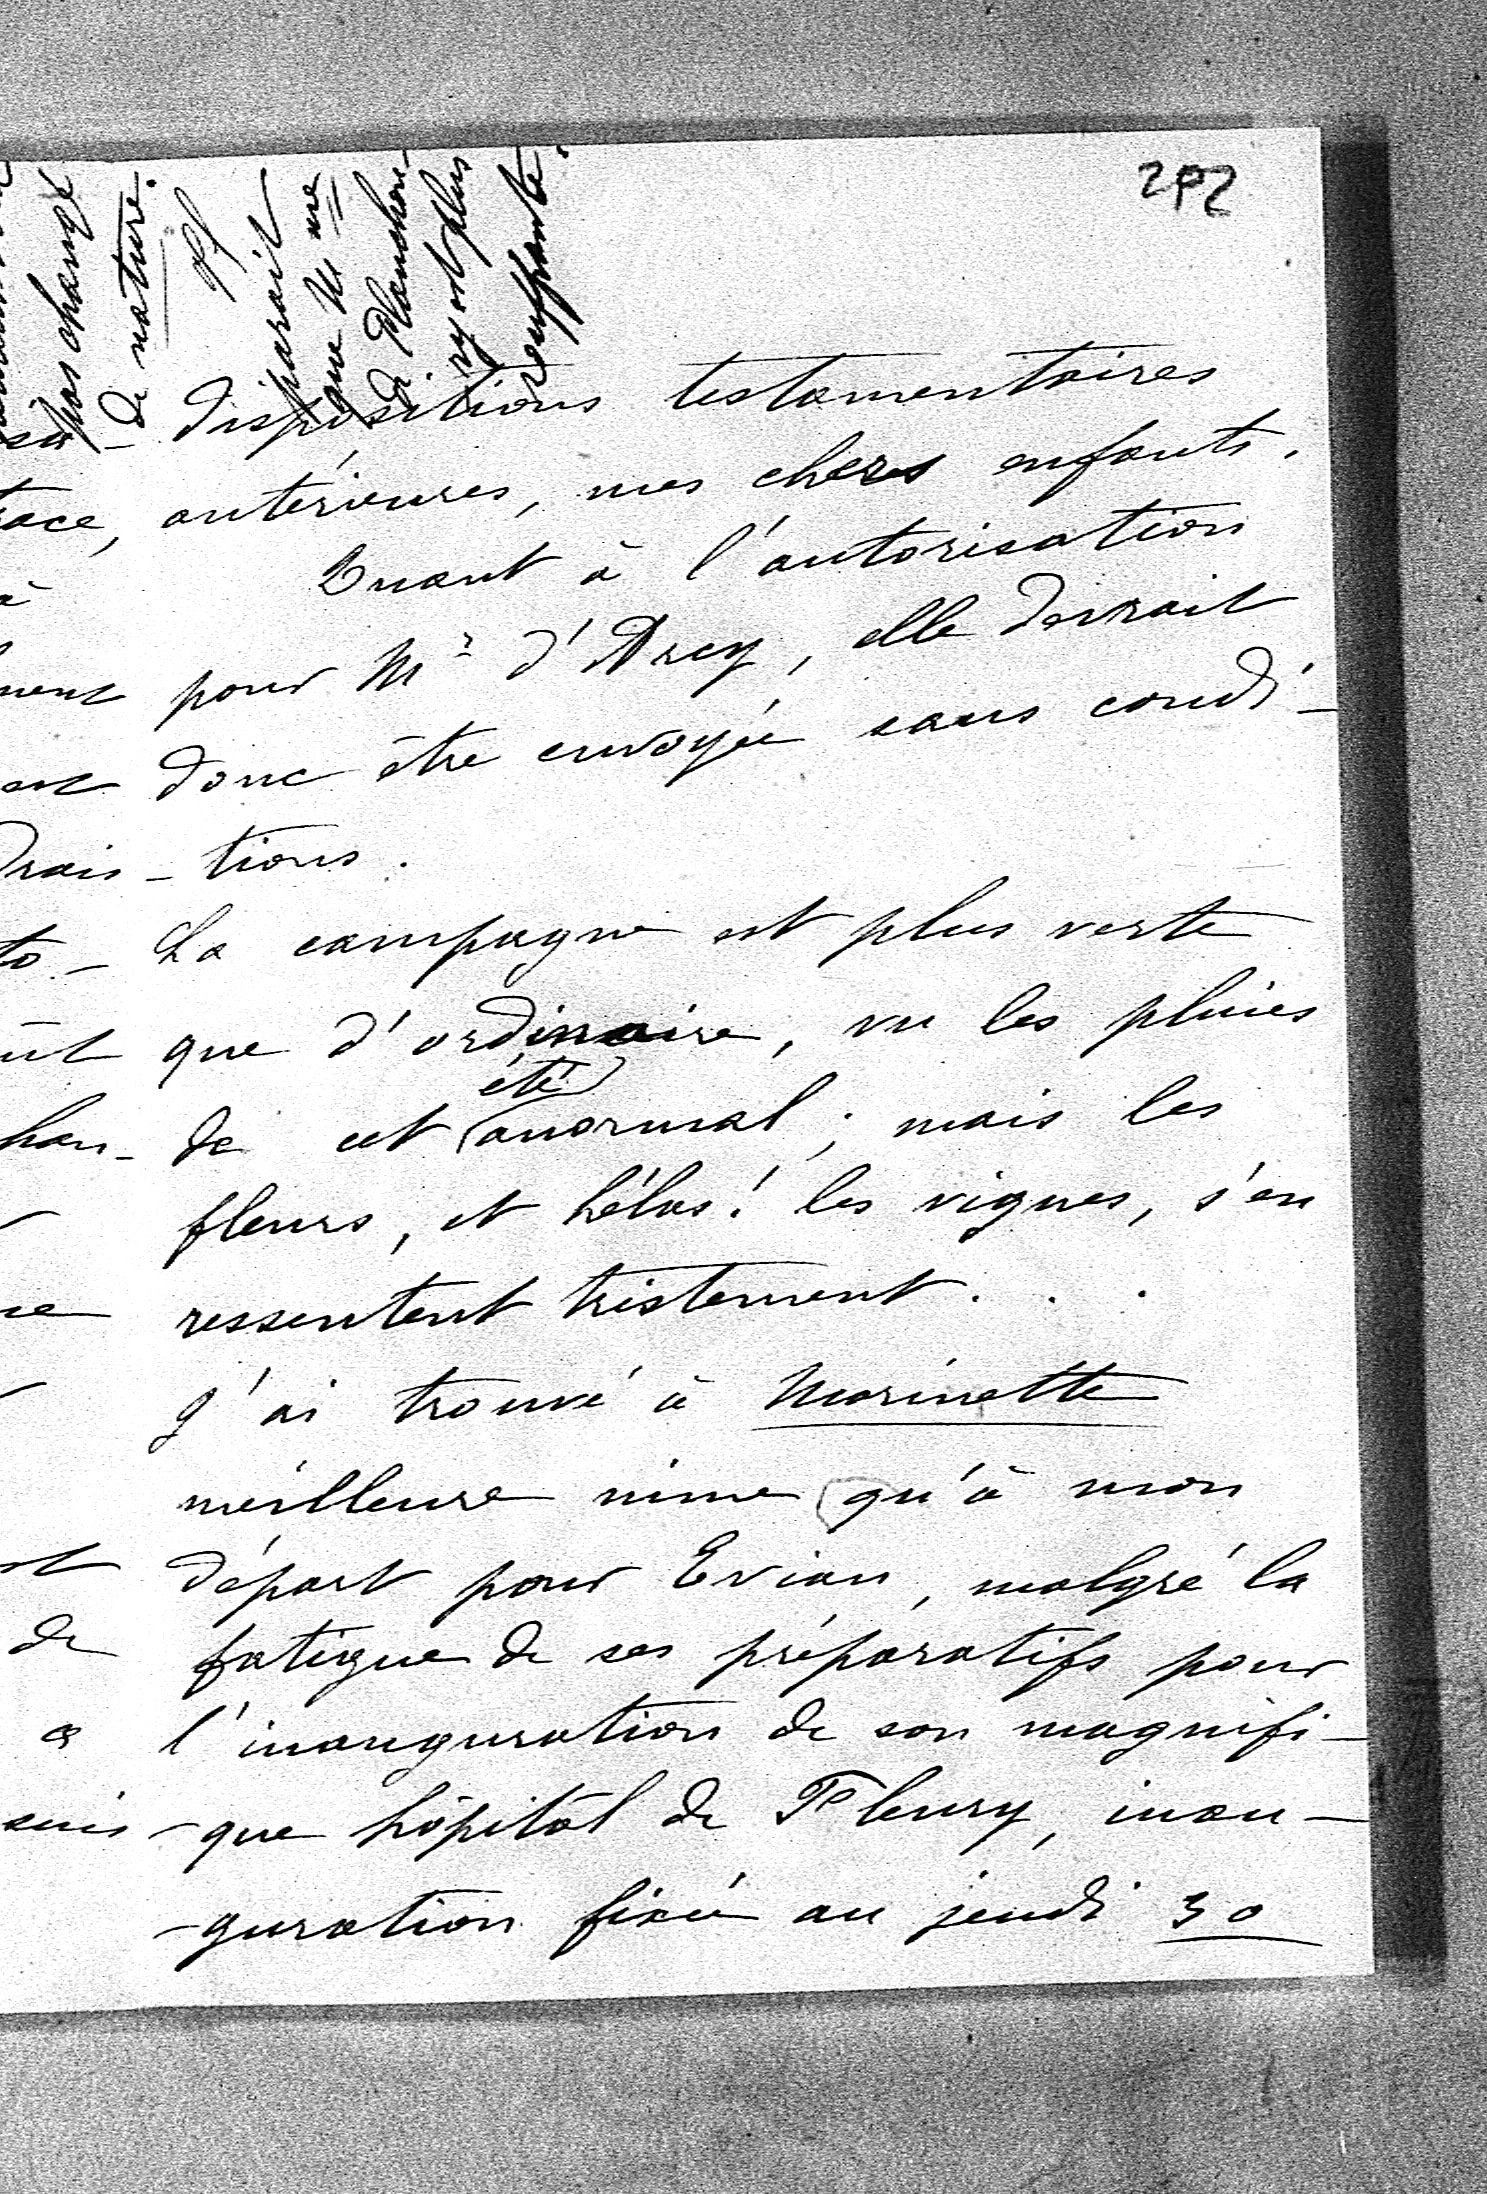 292
pas changé
de nature.
Il
paraît
que Mme
de Planchou-
ry est plus
souffrante.
dispositions testamentaires
antérieures, mes chers enfants.
Quant à l'autorisation
pour Mr d'Arcy, elle devrait
donc être envoyée sans condi-
-tions.
La campagne est plus verte
que d'ordinaire, vu les pluies
été
de cet anormal; mais les
fleurs, et hélas! les vignes, s'en
ressentent tristement...
J'ai trouvé à Marinette
meilleure mine qu'à mon
départ pour Evian, malgré la
fatigue de ses préparatifs pour
l'inauguration de son magnifi-
-que hôpital de Fleury, inau-
-guration fixée au jeudi 30